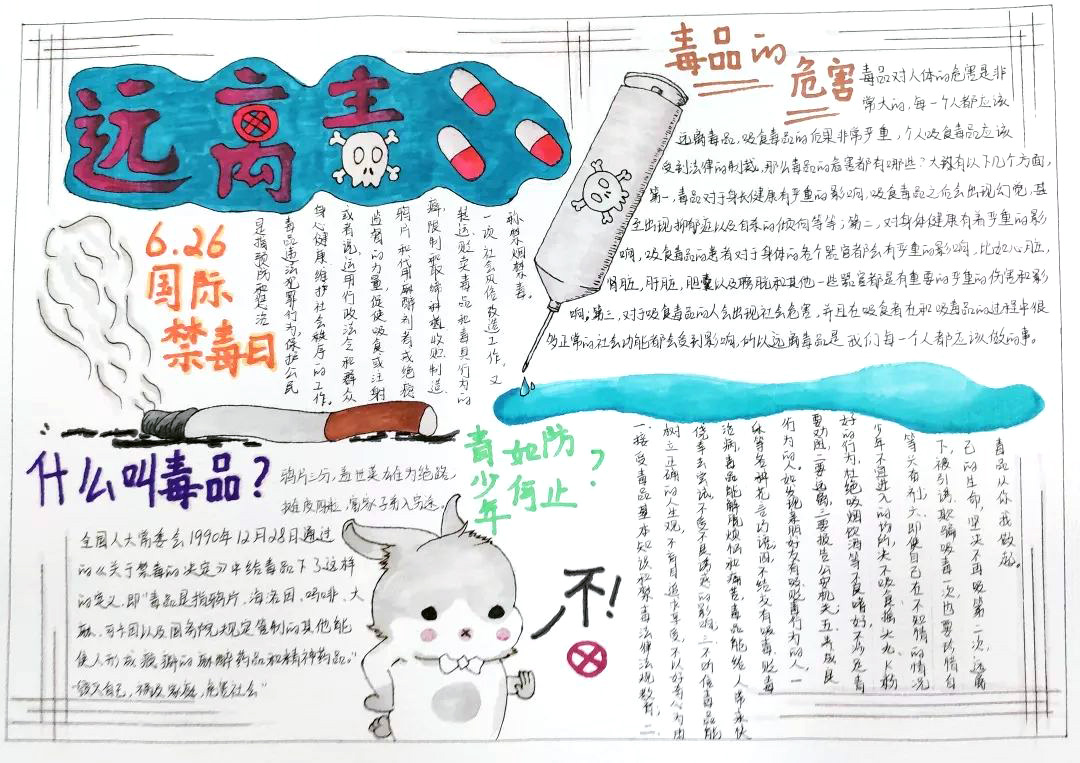 远离毒
6.26
国际
禁毒日
称禁烟禁毒。
一次社会风俗改造工作，又
转运贩卖毒品和毒具行为的
瘾，限制和取缔种植收贩制造
鸦片和代用麻醉剂者戒绝瘾
监督的力量，促使吸食或注射
或者说，运用行政法令和群众
身心健康维护社会秩序的工作。
毒品违法犯罪行为保护公民
是指预防和惩治
毒品的
危害
毒品对人体的危害是非
常大的，每一个人都应该
远离毒品，吸食毒品的后果非常严重，个人吸食毒品应该
受到法律的制裁，那么毒品的危害都有哪些？大致有以下几个方面，
第一，毒品对于身心健康有严重的影响，吸食毒品之后会出现幻觉，甚
至出现抑郁症以及自杀的倾向等等；第二，对身体健康有着严重的影
响，吸食毒品的患者对于身体的各个器官都会有严重的影响，比如心脏，
肾脏，肝脏，胆囊以及膀胱和其他一些器官都是有重要的严重的伤害和影
响。第三，对于吸食毒品的人会出现社会危害，并且在吸食者在和吸毒品的过程中很
多正常的社会功能都会受到影响，所以远离毒品是我们每一个人都应该做的事。
什么叫毒品？
鸦片三分，盖世英雄为绝路，
全国人大常委会1990年12月28日通过
的《关于禁毒的决定》中给毒品下了这样
的定义，即“毒品是指鸦片、海洛因、吗啡、大
麻、可卡因以及国务院规定管制的其他能
使人形成瘾癖的麻醉药品和精神药品。”
“毁灭自己，祸及家庭，危害社会”
青少年
如何
防止
？
不！
毒品从你我做起。
己的生命，坚决不再吸第二次，远离
下，被引诱、欺骗吸毒一次也要珍惜自
等兴奋剂，六、即使自己在不知情的情况
少年不宜进入的场所，决不吸食摇头丸、K粉
好的行为，杜绝吸烟饮酒等不良嗜好，不涉足青
要劝阻，二要远离，三要报告公安机关，五、养成良
行为的人，如发现亲朋好友有吸、贩毒行为的人，一
快等各种花言巧语，四、不结交有吸毒、贩毒
治病，毒品能解脱烦恼和痛苦，毒品能给人带来快
侥幸去尝试，不受不良诱惑的影响，三、不听信毒品能
树立正确的人生观，不盲目追求享受，不以好奇心为由
一、接受毒品基本知识和禁毒法律法规教育，二、